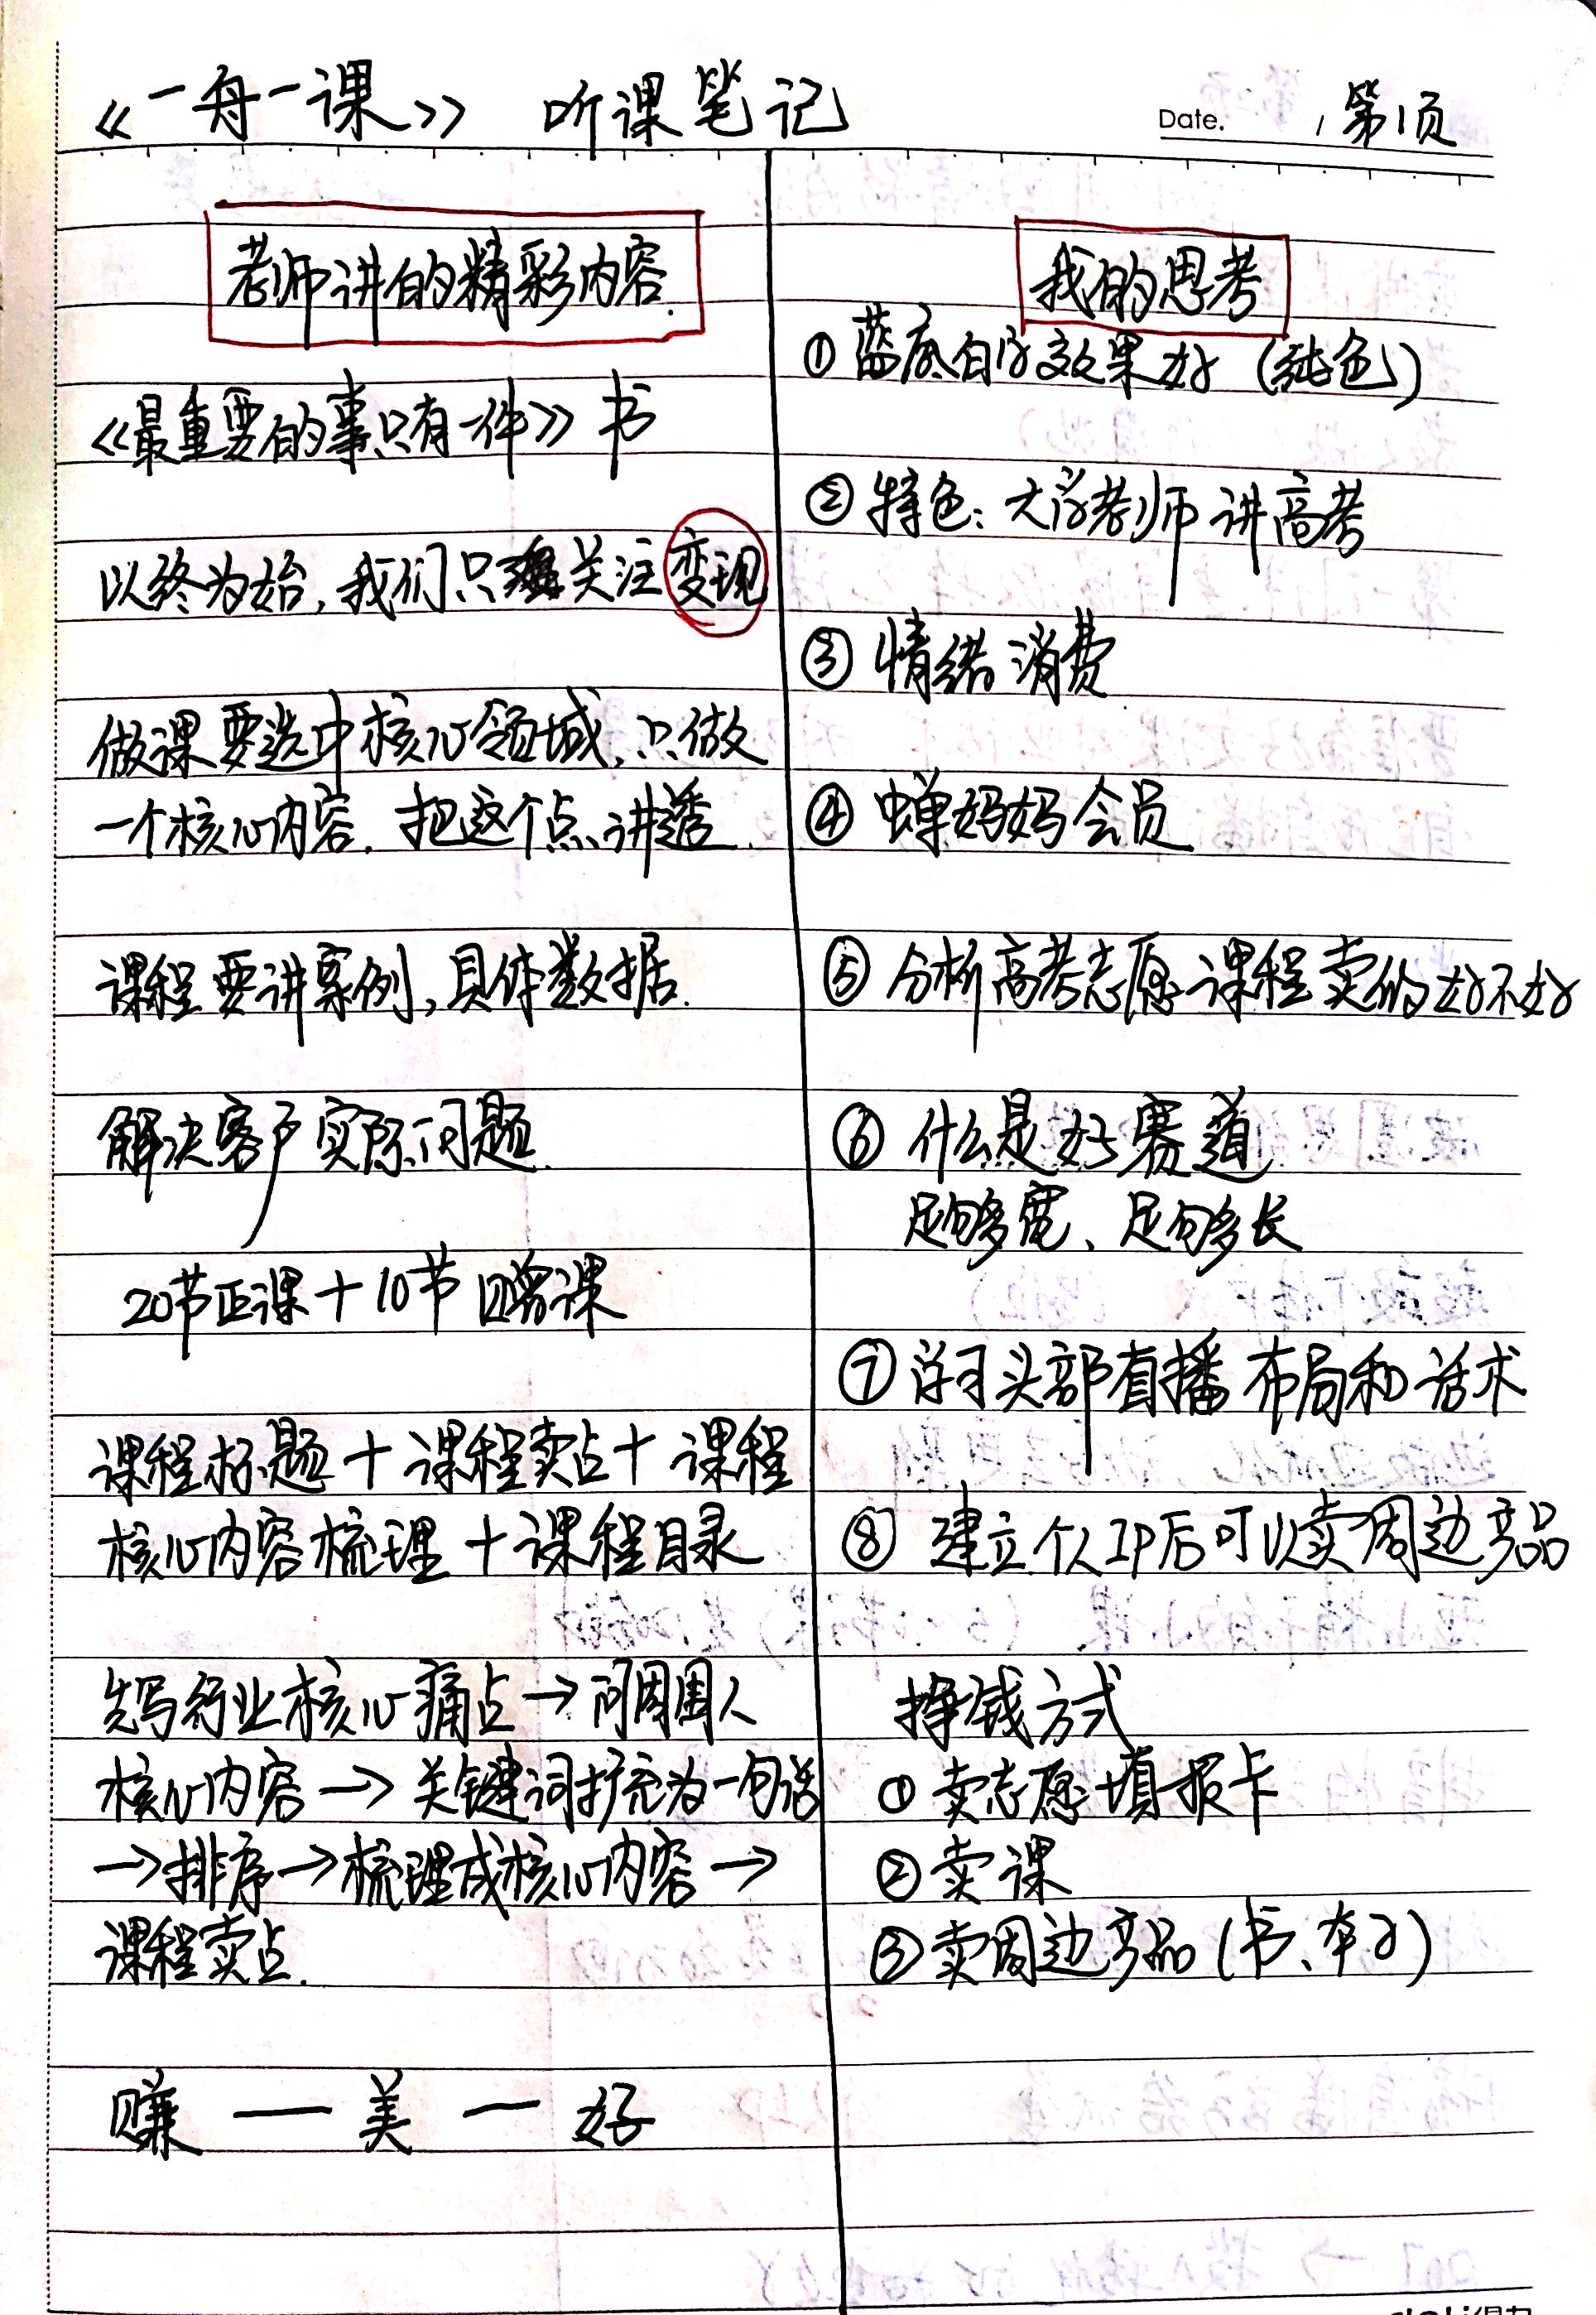 《一舟一课》 听课笔记
Date. 第1页
老师讲的精彩内容.
《最重要的事只有一件》书
以终为始,我们只 关注变现
做课要选中核心领域,只做
一个核心内容. 把这个点讲透.
课程要讲案例,具体数据.
解决客户实际问题.
20节正课+10节 课
课程标题+课程卖点+课程
核心内容梳理+课程目录
先写行业核心痛点→问周围人
核心内容→关键词扩充为一句话
→排序→梳理成核心内容→
课程卖点.
赚一美一好
我的思考
①蓝底白字效果好(纯色)
②特色:大学老师讲高考
③情绪消费
④蝉妈妈会员
⑤分析高考志愿课程卖的好不好
⑥什么是好赛道
足够宽、足够长
⑦学习头部直播布局和话术
⑧建立个人IP后可以卖周边产品
挣钱方式
①卖志愿填报卡
②卖课
③卖周边产品(书、本子)